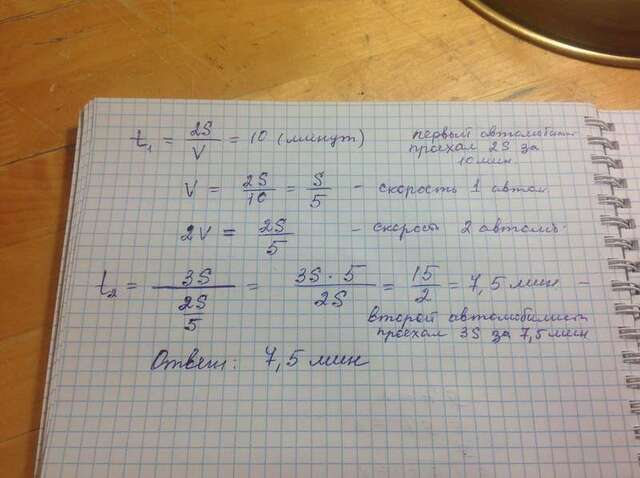 t₁ = 2S/V = 10 (минут) первый автомобилист
проехал 2S за
10 мин
V = 2S/10 = S/5 - скорость 1 автом
2V = 2S/5 - скорость 2 автомоб.
t₂ = 3S/(2S/5) = 3S · 5/2S = 15/2 = 7,5 мин -
второй автомобилист
проехал 3S за 7,5 мин
Ответ: 7,5 мин